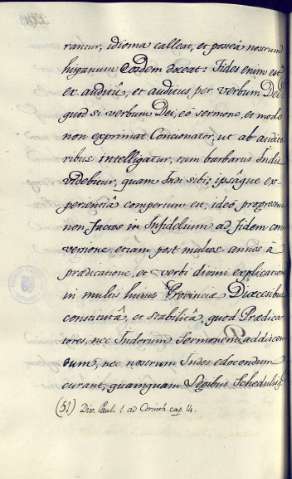 rantur, idioma calleat, et posteà nostrum
hispanum eosdem doceat: Fides enim est
ex auditû, et auditus per verbum Dei,
quod si verbum Dei, eó sermone, et modo
non exprimat Concionator, ut ab audito
ribus intelligatur, tam barbarus Indis
videbitur, quam Indi sibi; ipsâque ex
perientiâ compertum est, ideó, progressus
non factus in Infidelium ad fidem con
versione etiam post multos annos à
prædicatione, et verbi divini explicatione
in multis huius Provinciæ Diœcesibus
constitutâ, et stabilitâ, quod Prædica
tores, nec Indorum sermonem addiscen
dum, nec nostrum Indos edocendum
curant, quamquam Legibus Schedulis
(51) Div. Paul. 1 ad Corinth cap. 14.